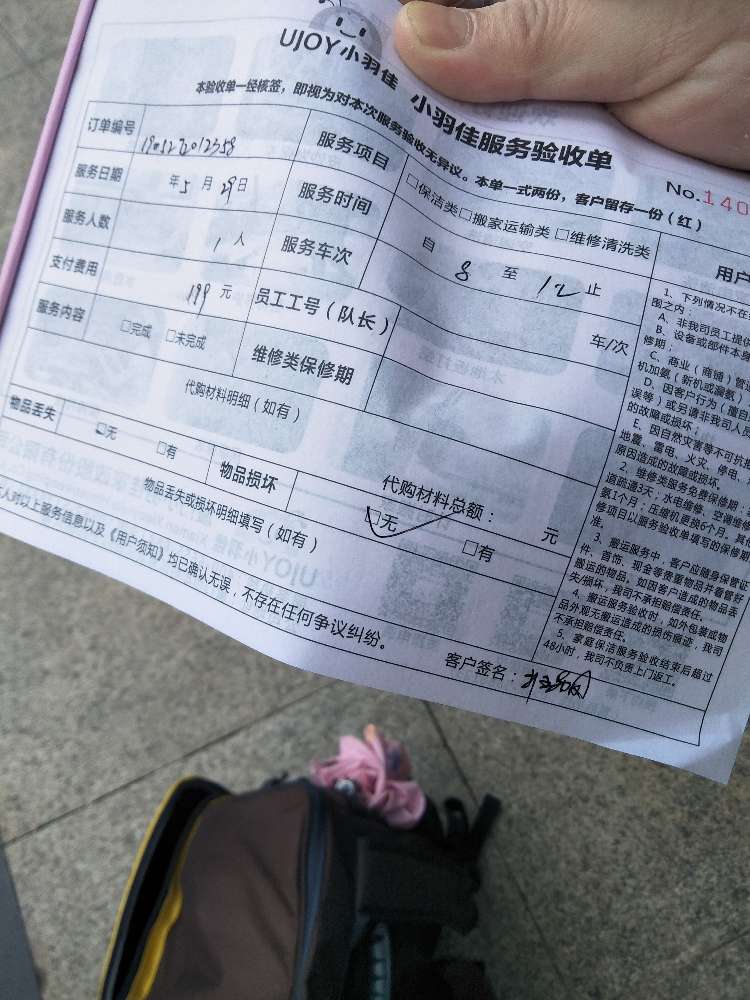 UJOY小羽佳
小羽佳服务验收单
本验收单一经核签，即视为对本次服务验收无异议。本单一式两份，客户留存一份（红）
No.140
订单编号
服务项目 □保洁类□搬家运输类 □维修清洗类
服务日期 年5月29日
服务时间 自 8 至 12 止
服务人数 1 人
服务车次 车/次
支付费用 199 元
员工工号（队长）
服务内容 □完成 □未完成
维修类保修期
代购材料明细（如有）
代购材料总额： 元
物品丢失 □无 □有
物品损坏 □无 □有
物品丢失或损坏明细填写（如有）
人对以上服务信息以及《用户须知》均已确认无误，不存在任何争议纠纷。
客户签名：
用户
1、下列情况不在
围之内：
A、非我司员工提供
B、设备或部件本身
修期；
C、商业（商铺）管
机加氨（新机或漏氨）
D、因客户行为（擅自
误等）或另请非我司人员
的故障或损坏；
E、因自然灾害等不可抗
地震、雷电、火灾、停电、
原因造成的故障或损坏。
2、维修类服务免费保修期：
道疏通3天；水电维修、空调维修
氨1个月；压缩机更换6个月。其他
修项目以服务验收单填写的保修期
准。
3、搬运服务中，客户应随身保管证
件、首饰、现金等贵重物品并看管好
搬运的物品。如因客户造成的物品丢
失/损坏，我司不承担赔偿责任。
4、搬运服务验收时，如外包装或物
品外观无搬运造成的损伤痕迹，我司
不承担赔偿责任。
5、家庭保洁服务验收结束后超过
48小时，我司不负责上门返工。